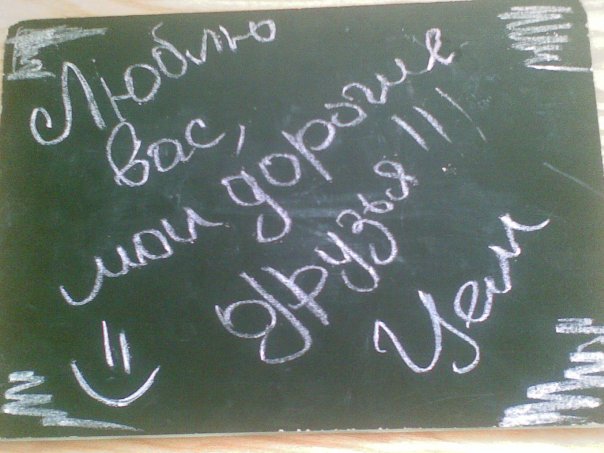 Люблю
вас,
мои дорогие
друзья!!!
Цем